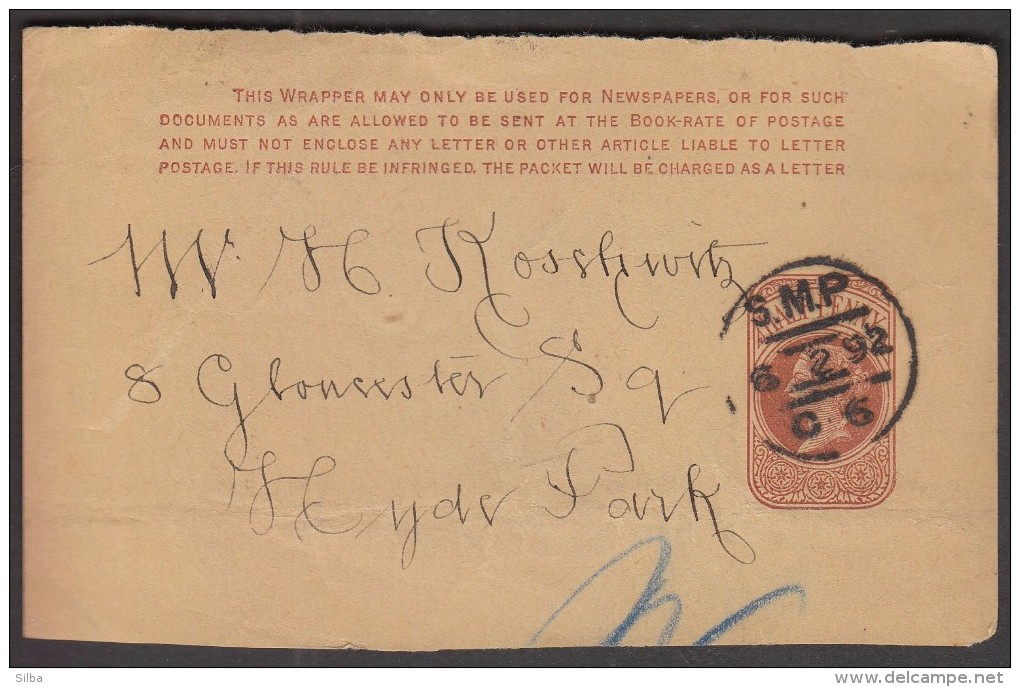 THIS WRAPPER MAY ONLY BE USED FOR NEWSPAPERS, OR FOR SUCH
DOCUMENTS AS ARE ALLOWED TO BE SENT AT THE BOOK-RATE OF POSTAGE
AND MUST NOT ENCLOSE ANY LETTER OR OTHER ARTICLE LIABLE TO LETTER
POSTAGE. IF THIS RULE BE INFRINGED, THE PACKET WILL BE CHARGED AS A LETTER
Mr. H. Koschwitz
8 Gloucester Sq
Hyde Park
HALF PENNY
S.M.P
6 2 92
C 6
Silba
delcampe.net